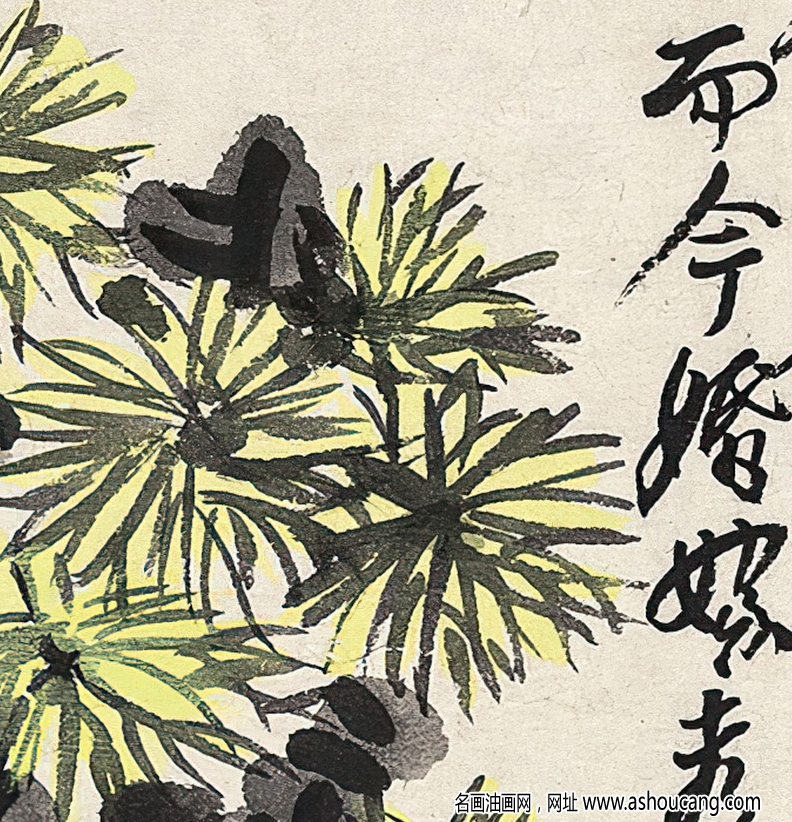 而今婚嫁
名画油画网，网址 www.ashoucang.com